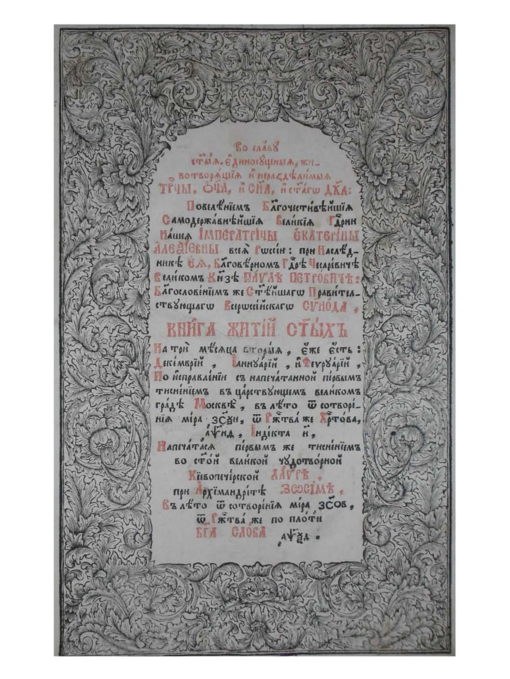 Во славу
ст҃ыѧ, є҆диносꙋщныѧ, жи-
вотворѧщїѧ и҆ нераздѣлимыѧ
Трⷪ҇цы, Ѻ҆ц҃а, и҆ Сн҃а, и҆ ст҃агѡ Дх҃а:
Повелѣнїемъ Благочестивѣйшїѧ
Самодержавнѣйшїѧ Великїѧ Гдⷭ҇рни
Нашеѧ Императрицы Екатерины
Алеѯїевны всеѧ Рѡссїи: при Наслѣд-
никѣ Еѧ, Благовѣрномъ Гдⷭ҇рѣ Цесаревичѣ
Великомъ Кнѧзѣ Павлѣ Петровичѣ:
Благословенїемъ же Ст҃ѣйшагѡ Правител-
ствꙋющагѡ Всерѡссїйскагѡ Сѵнода,
Книга житїй ст҃ыхъ
На три мѣсѧца вторыѧ, є҆же є҆сть:
Декемврїй, Іаннꙋарїй, и҆ Феврꙋарїй,
По исправленїи съ напечатанной первымъ
тисненїемъ въ царствꙋющемъ великомъ
градѣ Москвѣ, въ лѣто ѿ сотворе-
нїѧ мїра ... , ѿ Рж҃тва же Хрⷭ҇това,
... , Індїкта и҃,
Напечатасѧ первымъ же тисненїемъ
во ст҃ой великой чꙋдотворной
Кїевопечерской Лаврѣ,
при Архїмандрїтѣ Зѡсїмѣ,
Въ лѣто ѿ сотворенїѧ мїра ҂зсо҃в,
ѿ Рж҃тва же по плоти
Бг҃а Слова ҂аѱѯ҃д.